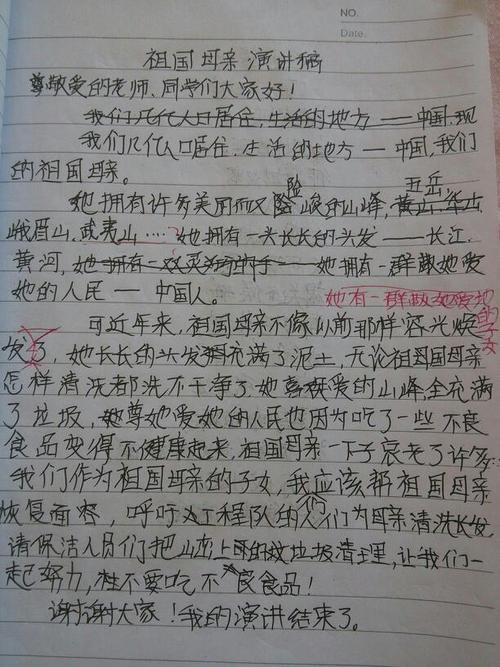 NO.
Date.
祖国母亲演讲稿
尊敬爱的老师、同学们大家好！
我们几代人口居住、生活的地方——中国，现
我们几代人口居住、生活的地方——中国，我们
的祖国母亲。
险 五岳
她拥有许多美丽而又险峻的山峰，黄山、华山
峨眉山、武夷山……她拥有一头长长的头发——长江、
黄河，她拥有一双灵巧的手——她拥有一群敬她爱
她的人民——中国人。
她有一群敬她爱她的子女
可近年来，祖国母亲不像以前那样容光焕
发了，她长长的头发充满了泥土，无论祖国母亲
怎样清洗都洗不干净了，她喜爱的山峰，全充满
了垃圾，她尊她爱她的人民也因为吃了一些不良
食品变得不健康起来，祖国母亲一下子衰老了许多
我们作为祖国母亲的子女，我应该帮祖国母亲
们
恢复面容，呼吁人工程队的人们为母亲清洗长发，
请保洁人员们把山峦上的垃圾清理，让我们一
起努力，不要吃不良食品！
谢谢大家！我的演讲结束了。